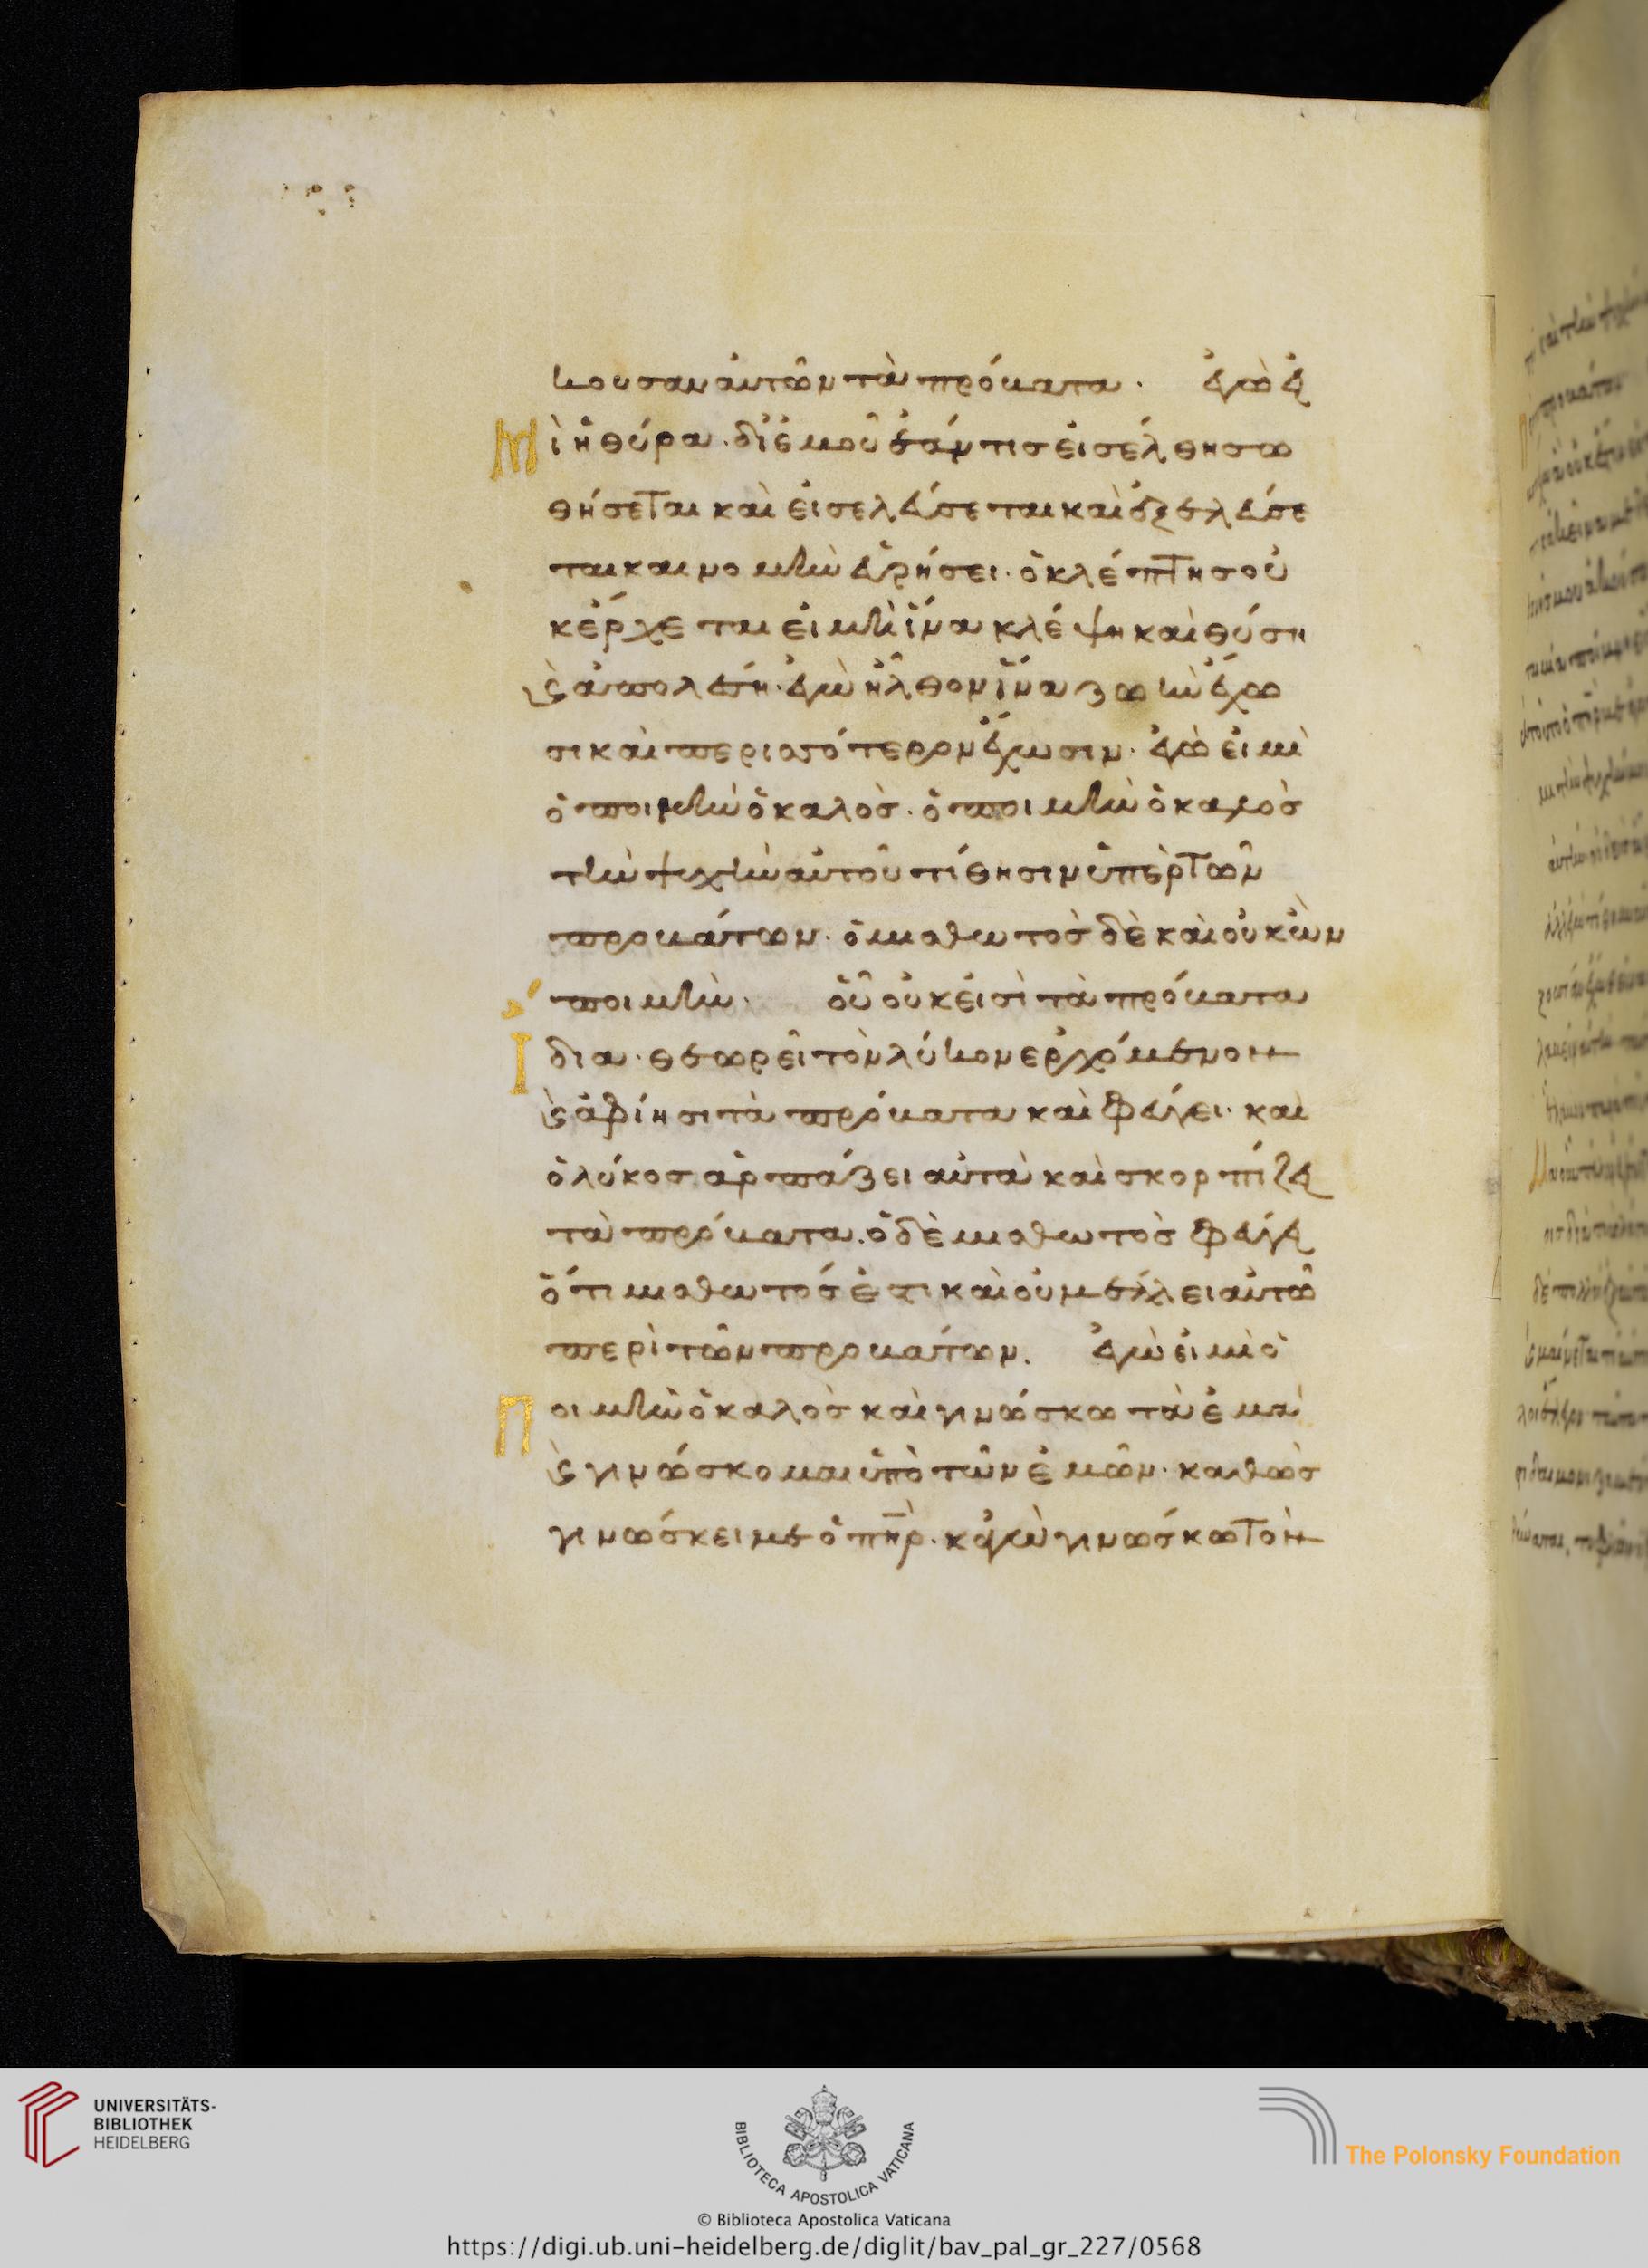 κουσαν αὐτῶν τὰ πρόβατα · ἐγώ εἰ
Μὶ ἡ θύρα · δι ἐμοῦ ἐάν τις εἰσέλθη σω
θήσεται καὶ εἰσελεύσεται καὶ ἐξελεύσε
ται και νομὴν εὑρήσει · ὁ κλέπτης οὐ
κ ἔρχεται εἰ μὴ ἵνα κλέψη καὶ θύση
ϗ ἀπολέση · ἐγὼ ἦλθον ἵνα ζωὴν ἔχω
σι καὶ περισσότερον ἔχωσιν · ἐγώ εἰμὶ
ὁ ποιμὴν ὁ καλὸς · ὁ ποιμὴν ὁ καλὸς
τὴν ψυχὴν αὐτοῦ τίθησιν ὑπὲρ τῶν
προβάτων · ὁ μισθωτὸς δὲ καὶ οὐκ ὢν
ποιμὴν · οὗ οὐκ εἰσὶ τὰ πρόβατα
Ιδια · θεωρεῖ τὸν λύκον ερχόμενον
ϗ ἀφίησι τὰ πρόβατα καὶ φεύγει · καὶ
ὁ λύκος ἁρπάζει αὐτὰ καὶ σκορπίζει
τὰ πρόβατα · ὁ δὲ μισθωτὸς φεύγει
ὅτι μισθωτός ἐστι καὶ οὐ μέλει αὐτῶ
περὶ τῶν προβάτων . ἐγὼ εἰμὶ ὁ
Ποιμὴν ὁ καλὸς καὶ γινώσκω τὰ ἐμὰ
ϗ γινώσκομαι ὑπὸ τῶν ἐμῶν · καθὼς
γινώσκει με ὁ πηρ · κἀγὼ γινώσκω τὸν
UNIVERSITÄTS-
BIBLIOTHEK
HEIDELBERG
BIBLIOTECA APOSTOLICA VATICANA
The Polonsky Foundation
© Biblioteca Apostolica Vaticana
https://digi.ub.uni-heidelberg.de/diglit/bav_pal_gr_227/0568